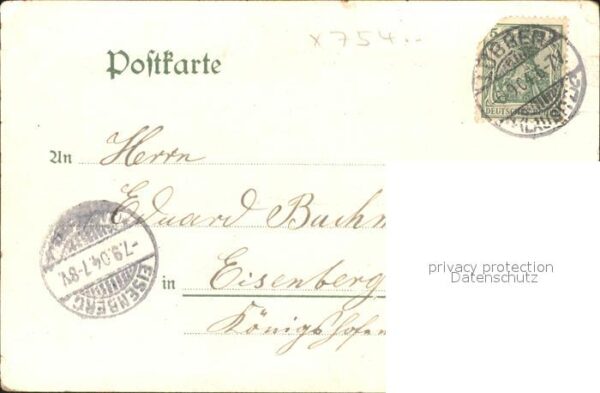 x 754.-
Postkarte
DEUTSCHES
An Herrn
Eduard Buchm
in Eisenberg
Königshofen
EISENBERG
-7.9.04.7-8V.
privacy protection
Datenschutz